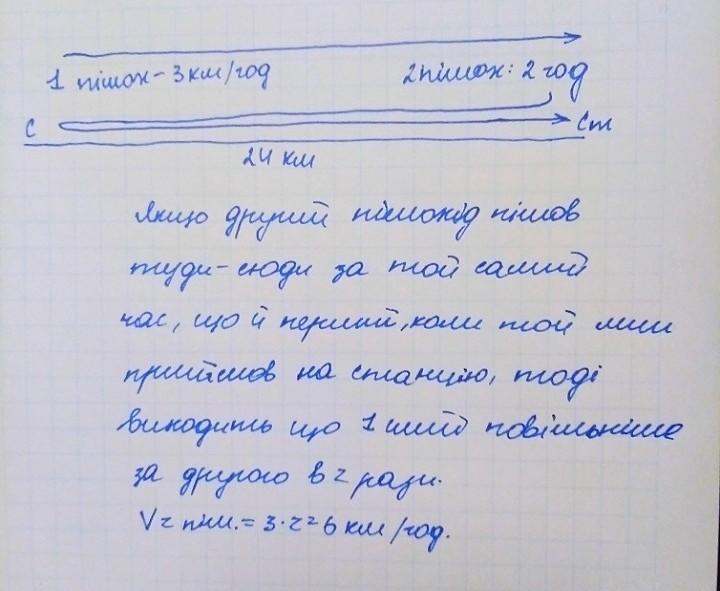 1 пішох - 3 км/год 2 пішох: 2 год
с Ст
24 км
Якщо другий пішохід пішов
туди-сюди за той самий
час, що й перший, коли той лиш
прийшов на станцію, тоді
виходить що 1 ший повільніше
за другого в 2 рази.
V2 піш. = 3·2=6 км/год.